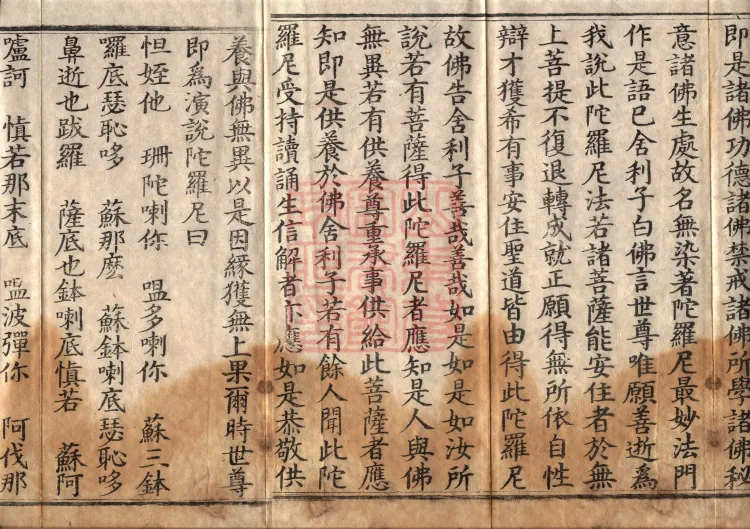 即是諸佛功德諸佛禁戒諸佛所學諸佛秘
意諸佛生處故名無染著陀羅尼最妙法門
作是語已舍利子白佛言世尊唯願善逝爲
我說此陀羅尼法若諸菩薩能安住者於無
上菩提不復退轉成就正願得無所依自性
辯才獲希有事安住聖道皆由得此陀羅尼
故佛告舍利子善哉善哉如是如是如汝所
說若有菩薩得此陀羅尼者應知是人與佛
無異若有供養尊重承事供給此菩薩者應
知即是供養於佛舍利子若有餘人聞此陀
羅尼受持讀誦生信解者亦應如是恭敬供
養與佛無異以是因緣獲無上果爾時世尊
即爲演說陀羅尼曰
怛姪他 珊陀喇你 嗢多喇你 蘇三鉢
囉底瑟恥哆 蘇那麽 蘇鉢喇底瑟恥哆
鼻逝也跋羅 薩底也鉢喇底愼若 蘇阿
嚧訶 愼若那末底 嗢波彈你 阿伐那